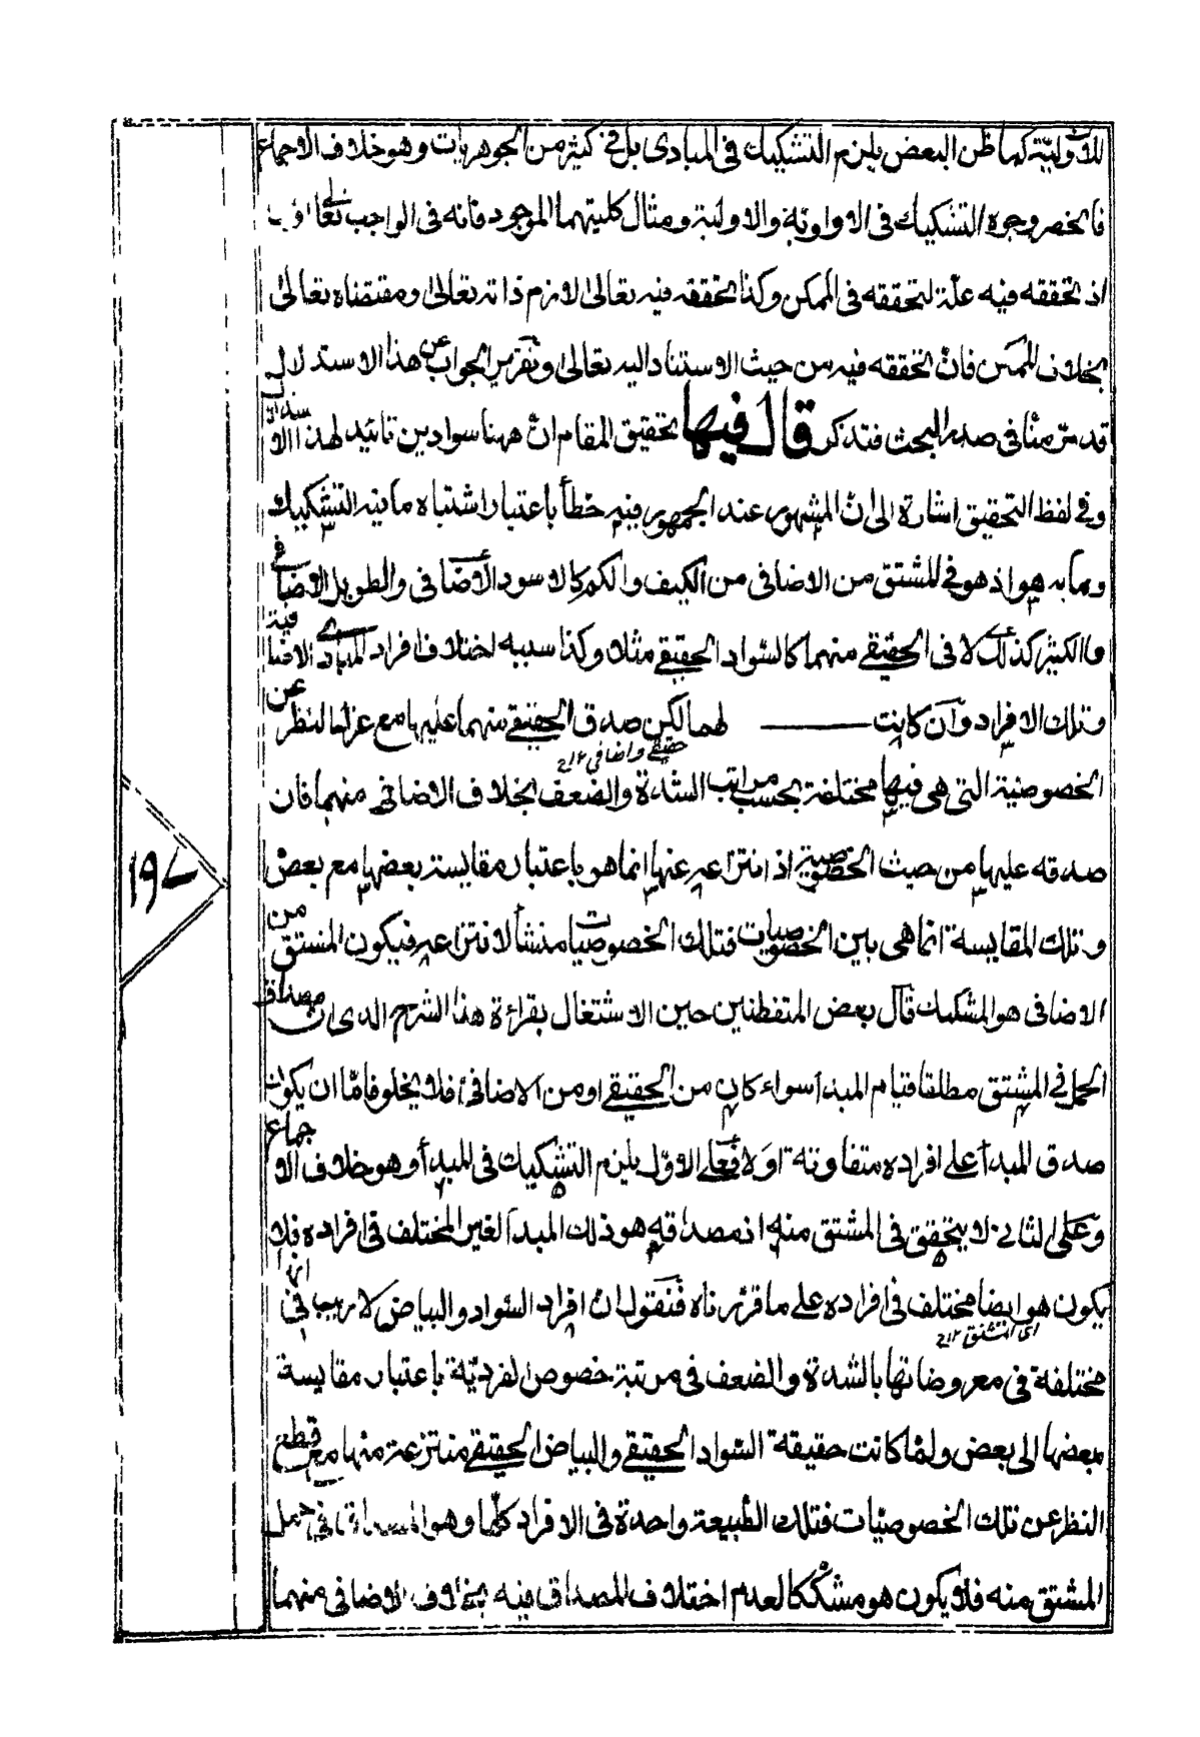 للاولية كما ظن البعض يلزم التشكيك فى المبادى بل فى كثير من الجوهريات وهو خلاف الاجماع
فانحصر وجوه التشكيك فى الاولوية والاولية ومثال كليتهما الموجود فانه فى الواجب تعالى
اذ تحققه فيه علّة لتحققه فى الممكن وكذا تحققه فيه تعالى لازم ذاته تعالى ومقتضاه تعالى
بخلاف الممكن فانّ تحققه فيه من حيث الاستناد اليه تعالى وتقرير الجواب عن هذا الاستدلال
قد مرّ منّا فى صدر المبحث فتذكر قال فيها تحقيق المقام انّ ههنا سوادين تائيد لهذا الاستدلال
وفى لفظ التحقيق اشارة الى انّ المشهور عند الجمهور فيه خطأ باعتبار اشتباه ما فيه التشكيك
وما به هو اذ هو فى المشتق من الاضافى من الكيف والكم كالاسود الاضافى والطويل الاضافى
والكثير كذلك لا فى الحقيقے منهما كالسّواد الحقيقے مثلا وكذا سببه اختلاف افراد المبادے الاضافية
وتلك الافراد وان كانت لهما لكن صدق الحقيقے منهما عليها مع عزل النظر عن
حقيقے واضافى ١٢
الخصوصية التى هى فيها مختلفة بحسب مراتب الشدة والضعف بخلاف الاضافى منهما فان
صدقه عليها من حيث الخصوصية اذ انتزاعه عنها انما هو باعتبار مقايسة بعضها مع بعض
وتلك المقايسة انما هى بين الخصوصيات فتلك الخصوصيات منشأ لانتزاعه فيكون المشتق من
الاضافى هو المشكك قال بعض المتفطنين حين الاشتغال بقراءة هذا الشرح لدى ان مصداق
الحمل فى المشتق مطلقا قيام المبدأ سواء كان من الحقيقے او من الاضافى فلا يخلو فامّا ان يكون
صدق المبدأ على افراده متفاوتة اولا فعلے الاوّل يلزم التشكيك فى المبدأ وهو خلاف الاجماع
وعلى الثانى لا يتحقق فى المشتق منه اذ مصداقه هو ذلك المبدأ الغير المختلف فى افراده فلا
يكون هو ايضا مختلف فى افراده على ما قررناه فنقول انّ افراد السّواد والبياض لا ريب فى انها
اى المشتق ١٢
مختلفة فى معروضاتها بالشدة والضعف فى مرتبة خصوص الفرديّة باعتبار مقايسة
بعضها الى بعض ولمّا كانت حقيقة السّواد الحقيقے والبياض الحقيقے منتزعة منها مع قطع
النظر عن تلك الخصوصيّات فتلك الطّبيعة واحدة فى الافراد كلّها وهو المصداق فى حمل
المشتق منه فلا يكون هو مشكّكا لعدم اختلاف المصداق فيه بخلاف الاضافى منهما
١٩٧